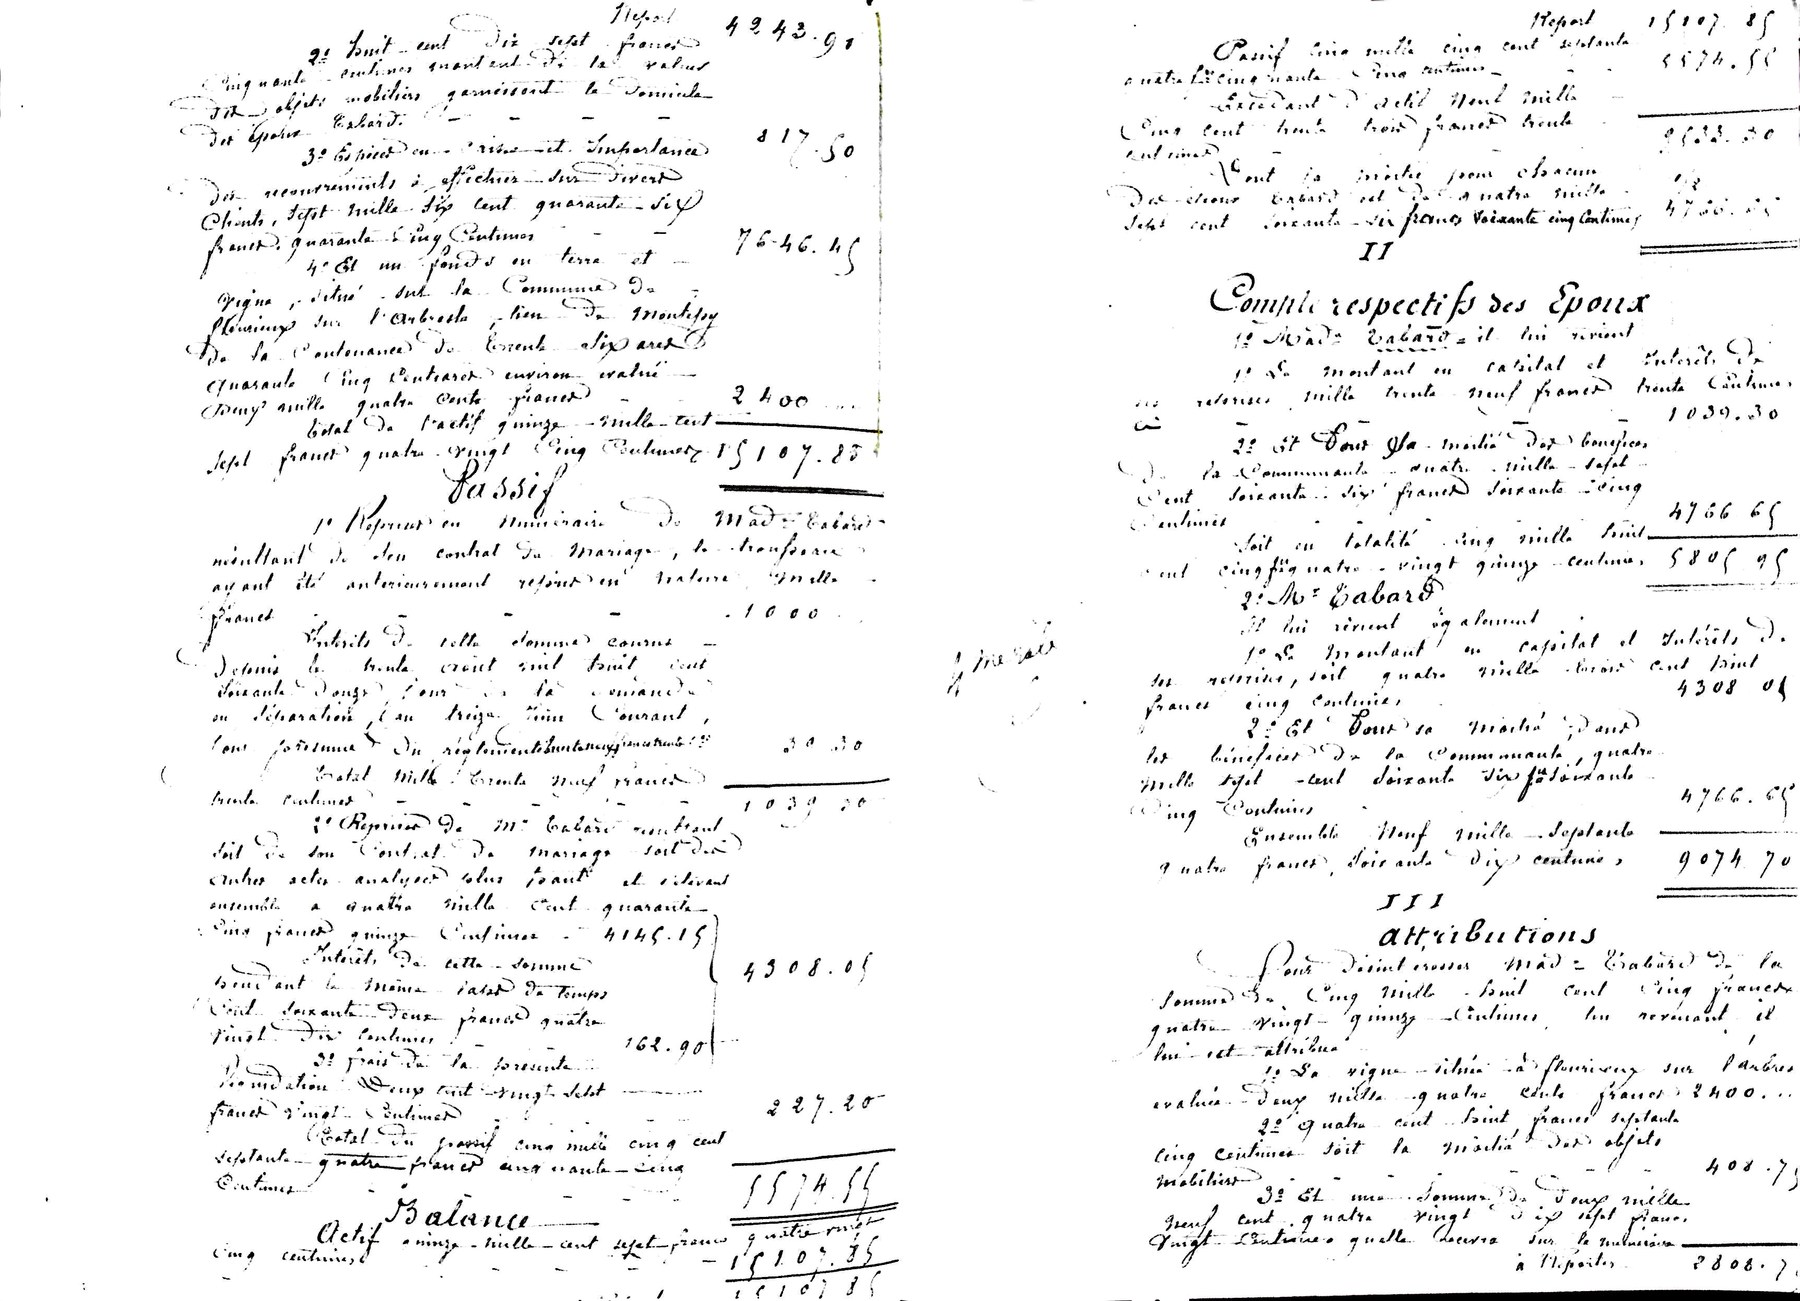 Report 4243.90
2º Huit cent dix sept francs
Cinquante centimes montant de la valeur
des objets mobiliers garnissant le domicile
des époux Tabard. 817.50
3º Espèces en caisse et Importance
des recouvrements à effectuer sur divers
Clients, sept mille six cent quarante six
francs, quarante Cinq Centimes 7646.45
4º Et un fonds en terre et
vigne, situé sur la Commune de
fleurieux sur l'Arbresle, lieu de Montessy
De la Contenance de Trente Six ares
quarante Cinq Centiares environ evalué
Deux mille quatre cents francs 2400
Total de l'actif quinze mille cent
sept francs quatre vingt Cinq Centimes 15107.85
Passif
1º Reprises en Numéraire de Made Tabard
résultant de son contrat de Mariage, le trousseau
ayant été anterieurement repris en Nature Mille
francs 1000
Intérêts de cette somme courus
Depuis le trente août mil huit cent
Soixante douze, jour de la demande
en séparation, au treize Juin Courant,
Jour présumé du règlement trente neuf francs trente ces 39.30
Total Mille Trente Neuf francs
trente centimes 1039.30
2º Reprises de Mr Tabard résultant
soit de son Contrat de Mariage soit des
autres actes analysés plus haut et s'élevant
ensemble a quatre mille Cent quarante
Cinq francs quinze Centimes 4145.15
Intérêts de cette somme
pendant le même laps de temps 4308.05
Cent soixante deux francs quatre
vingt dix centimes 162.90
3º frais de la présente
liquidation Deux cent vingt sept
francs vingt Centimes 227.20
Total du passif cinq mille cinq cent
septante quatre francs cinquante cinq
Centimes 5574.55
Balance
Actif quinze mille cent sept francs quatre vingt
cinq centimes 15107.85
15107.85
Report 15107.85
Passif cinq mille cinq cent septante
quatre frs cinquante Cinq centimes 5574.55
Excédant d'actif Neuf Mille
Cinq cent trente trois francs trente
centimes 9533.30
Dont la moitié pour chacun
des époux Tabard est de quatre mille 1/2
sept cent soixante six francs soixante cinq Centimes 4766.65
II
Compte respectifs des Epoux
1º Made Tabard = il lui revient
1º Le montant en capital et Intérêts de
ses reprises mille trente neuf francs trente Centimes
ci 1039.30
2º Et Pour sa moitié des benefices
de la Communauté quatre mille sept
Cent soixante six francs soixante cinq
Centimes 4766.65
Soit en totalité cinq mille huit
cent cinq frs quatre vingt quinze centimes 5805 95
2º Mr Tabard
Il lui revient également
1º Le Montant en capital et Intérêts de
ses reprises, soit quatre mille trois cent huit
francs cinq centimes 4308 05
2º Et Pour sa moitié, dans
les bénéfices de la Communauté, quatre
Mille sept cent Soixante six frs soixante
Cinq Centimes 4766.65
Ensemble Neuf mille Septante
quatre francs, Soixante Dix centimes 9074 70
III
attributions
Pour désintéresser Made Tabard de la
Somme de Cinq Mille huit cent Cinq francs
quatre vingt quinze Centimes lui revenant il
lui est attribué
1º La vigne située à fleurieux sur l'arbres
evaluée Deux mille quatre cents francs 2400...
2º Quatre cent huit francs septante
cinq centimes soit la moitié des objets
mobiliers 408.75
3º Et une somme de Deux mille
Neuf cent quatre vingt dix sept francs
vingt Centimes quelle recevra sur le numéraire
à Reporter 2808.7